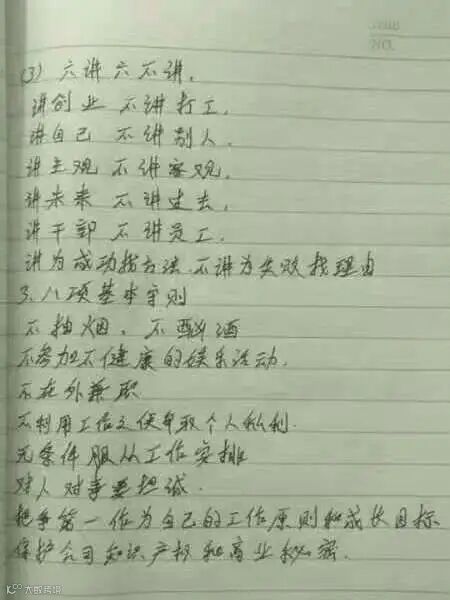 NO.
(3) 六讲六不讲.
讲创业 不讲打工.
讲自己 不讲别人.
讲主观 不讲客观.
讲未来 不讲过去.
讲干部 不讲员工.
讲为成功找方法.不讲为失败找理由
3、八项基本守则
不抽烟、不酗酒
不参加不健康的娱乐活动.
不在外兼职
不利用工作之便牟取个人私利.
无条件服从工作安排
对人对事要坦诚.
把争第一作为自己的工作原则和成长目标
保护公司知识产权和商业秘密.
大数跨境